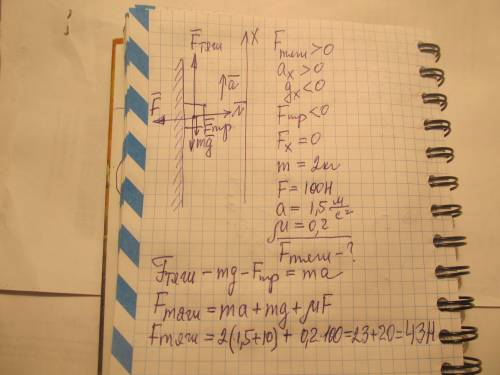 F⃗тяги
X
a⃗
F⃗
N⃗
F⃗тр
mg⃗
Fтяги>0
aₓ>0
gₓ<0
Fтр<0
Fₓ=0
m=2кг
F=100Н
a=1,5 м/с²
μ=0,2
Fтяги-?
Fтяги-mg-Fтр=ma
Fтяги=ma+mg+μF
Fтяги=2(1,5+10)+0,2·100=23+20=43Н